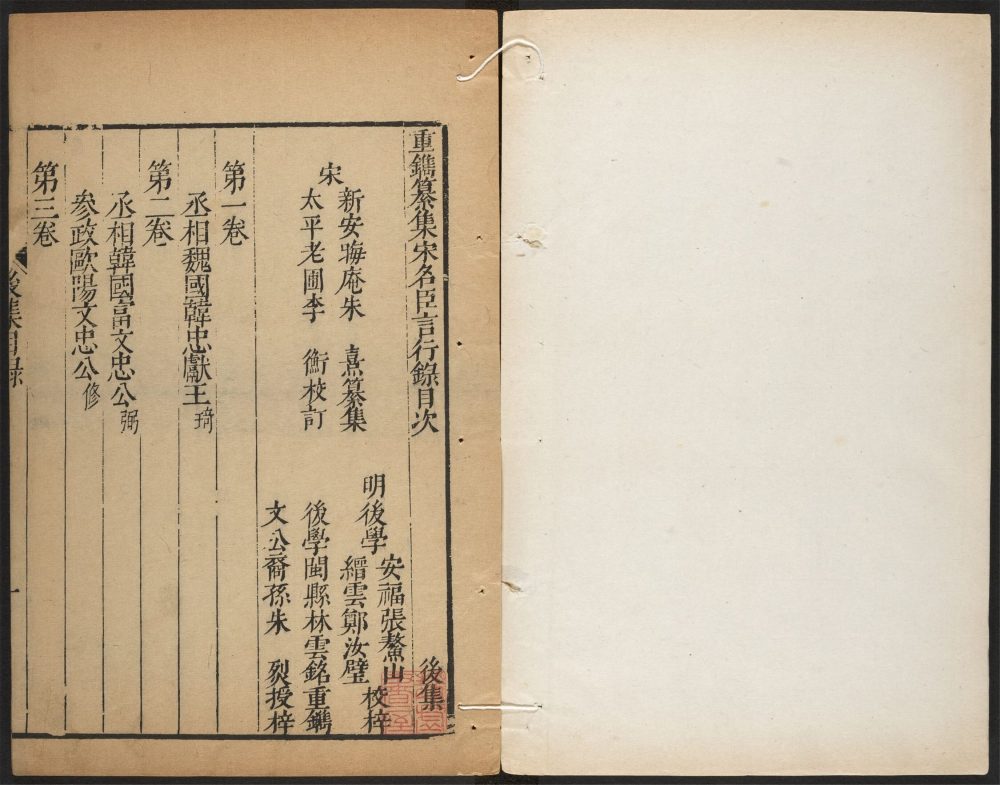 重鐫纂集宋名臣言行錄目次
後集
宋
新安晦庵朱　熹纂集
太平老圃李　衡校訂
明後學
安福張鰲山
縉雲鄭汝璧
校梓
後學閩縣林雲銘重鐫
文公裔孫朱　烈授梓
第一卷
丞相魏國韓忠獻王琦
第二卷
丞相韓國富文忠公弼
參政歐陽文忠公修
第三卷
後集目錄
一